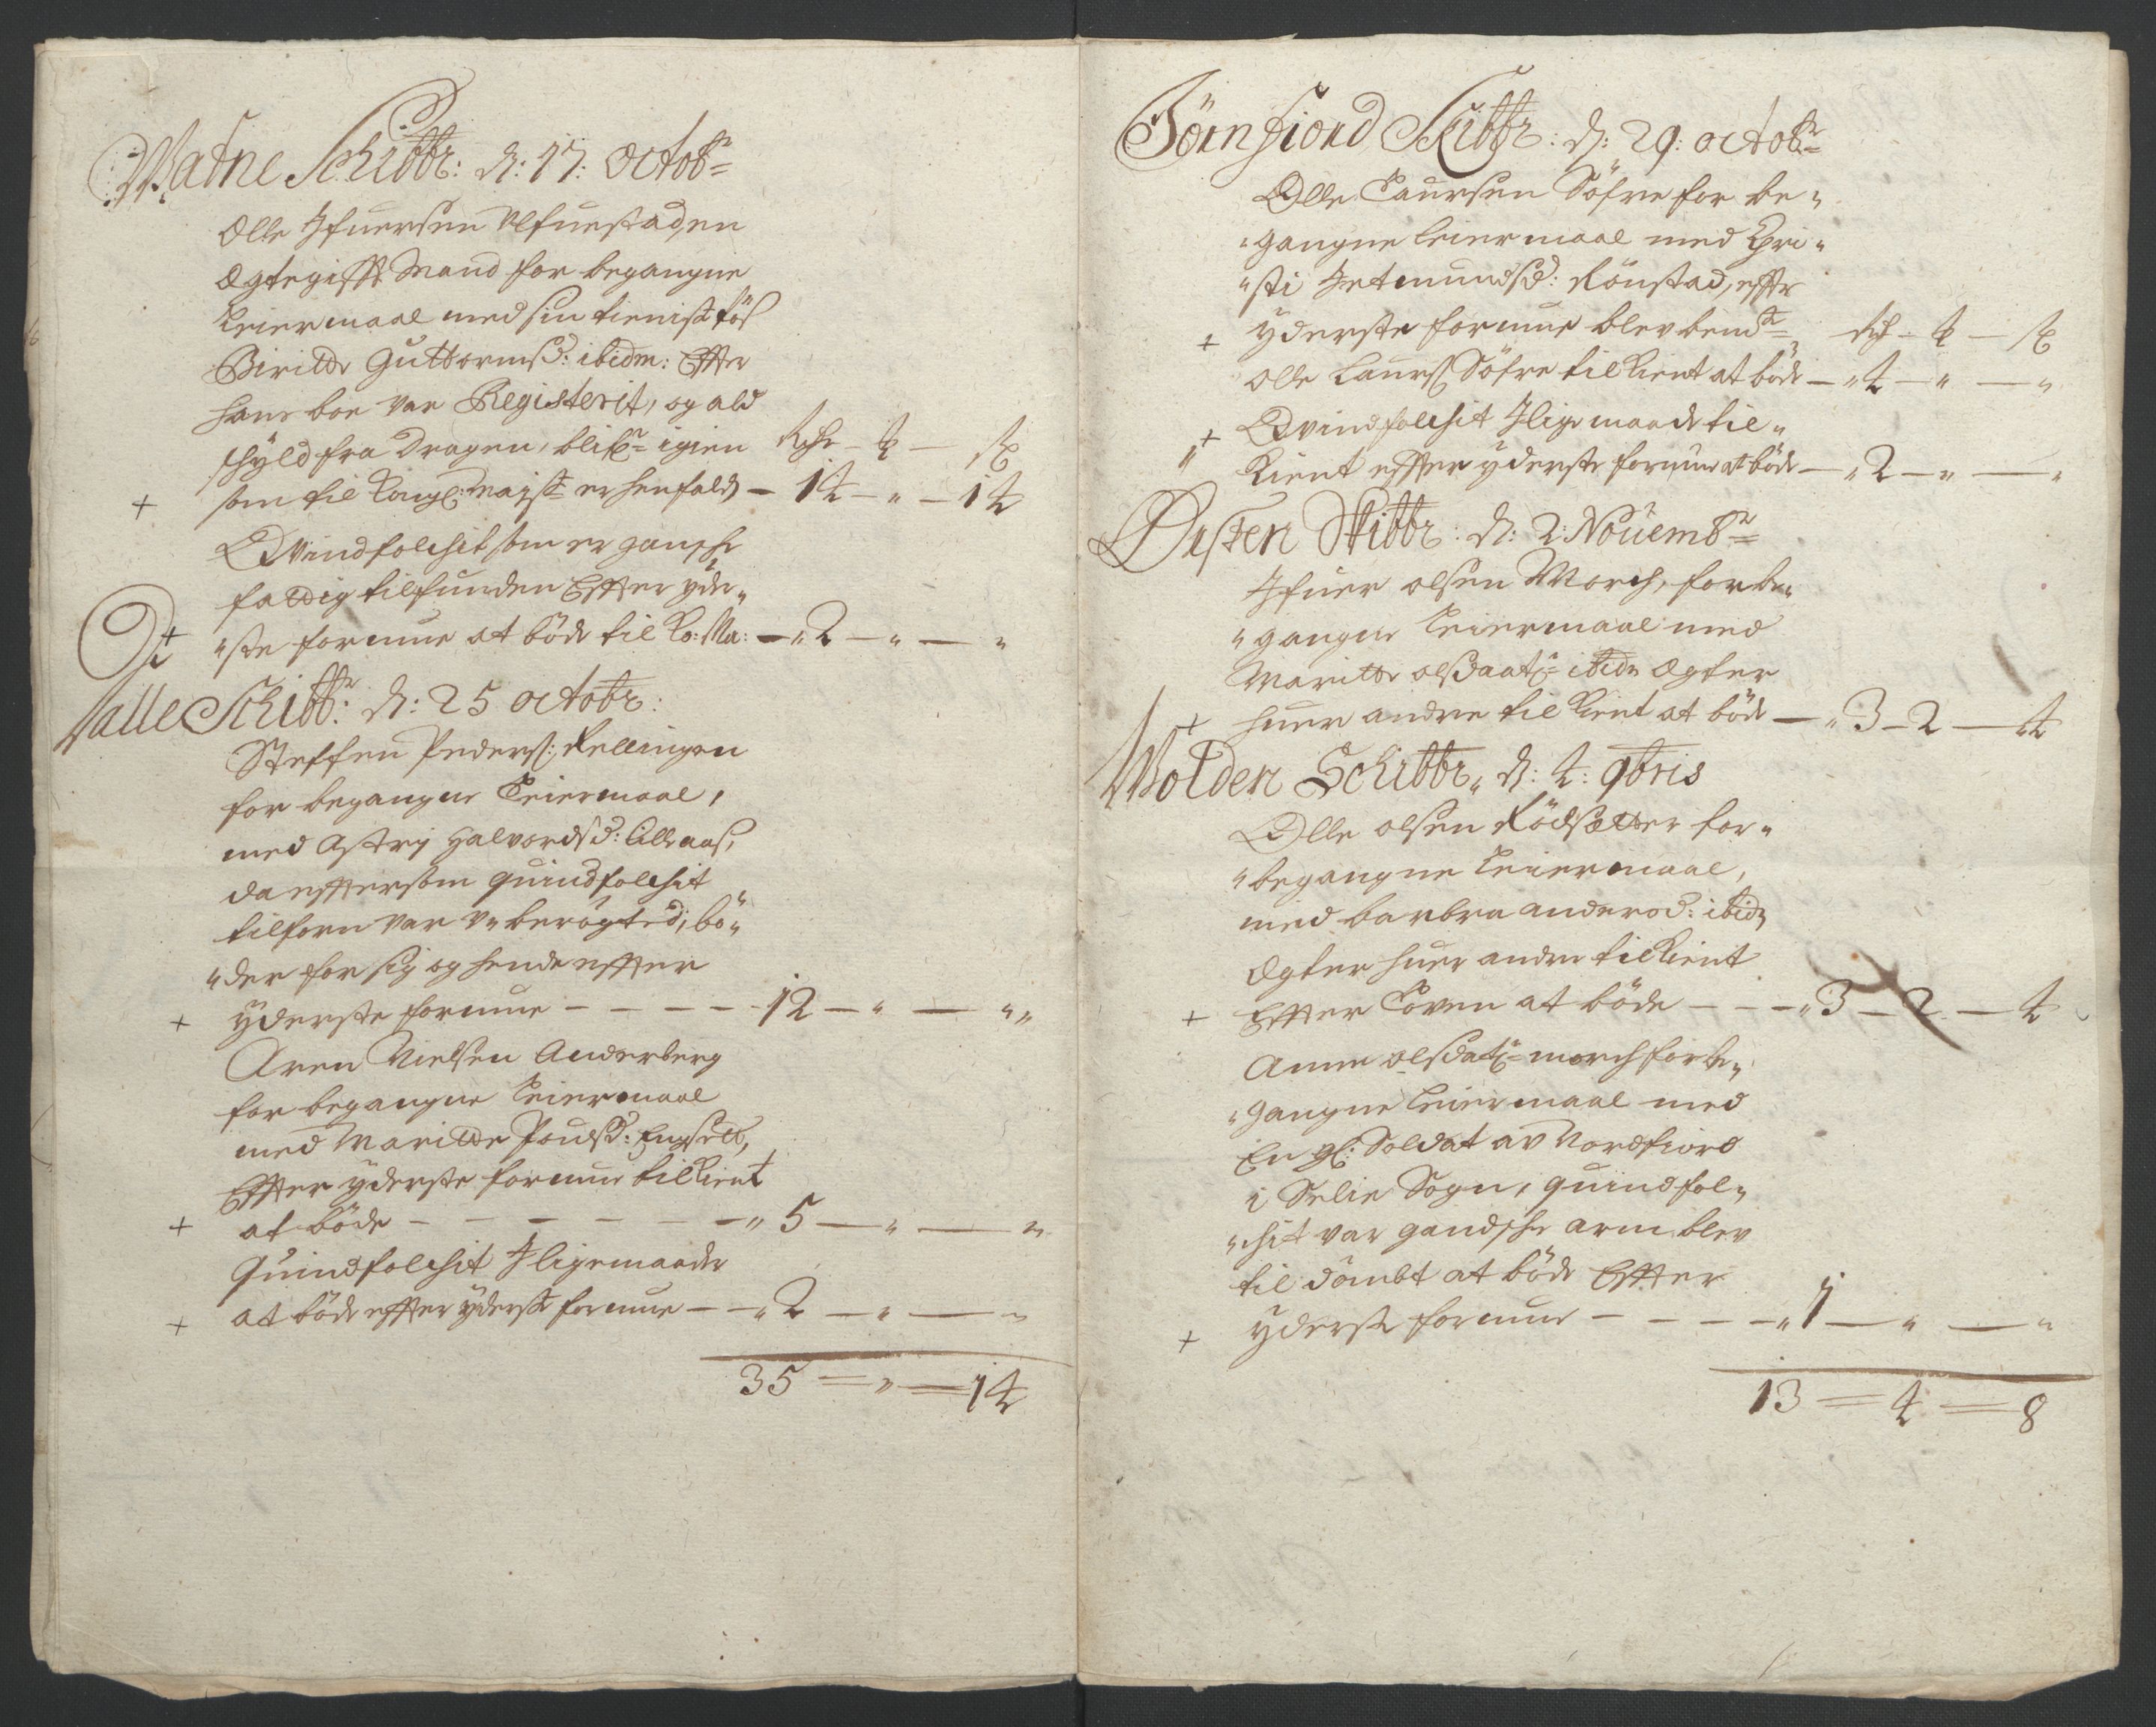 Watne Schibbr: d: 17: Octobr
Olle Jfuersen Ulfuestad, en
Ægtegifft Mand for begangne
Leiermaal med sin tienist tös
Biritte Guttormsd: ibidm: Effter
hans boe var Registerit, og ald
schÿld fra dragen, blifr igien Rdr – ₰ – ß
+ som til Kongl: Maÿst er henfalds – 14 – " – 14
Qvindfolchit som er gansche
fattig tilfunden Effter yder"
+ "ste formue at böde til Ko: Ma: – " 2 – " – "
Valle Schibbr: d: 25 octobr:
Steffen Peders: Rellingen
for begangne Leiermaal,
med Astrj Halvordsd: Alleaas,
da effterson quindfolchit
tilforn var u-berögted, bö"
"der for sig og hende effter
+ ÿderste formue – – – – 12 – " – "
Aren Nielsen Anderberg
for begangne Leiermaal
med Maritte Poulsd: Engsett,
Effter ÿderste formue tilkient
+ at böde – – – – – " 5 – " – "
Quindfolchit Jligemaade
+ at böde effter ÿderste formue – " 2 – " – "
35 = " = 14
Jörnfiord Skibbr: d: 29: octobr
Olle Laursen Söfre for be"
"gangne leiermaal med Chri"
"sti Jetmundsd: Rönstad, efftr
+ ÿderste formue blev bemte Rdr – ₰ – ß
Olle Laurs Söfre tilkient at böde – " 4 – " – "
+ Qvindfolchit Jlige maade til"
" kient effter ÿderste formue at böde – " 2 – " – "
Ørsten Skibbr: d: 2: Nouembr
Jfuer olsen Morch, for be"
"gangne Leiermaal med
Maritte olsdaatr ibidm Ægter
+ huer andre til kient at böde – " 3 – 2 – 4
Wolden Schibbr, d: 4: 9bris
Olle olsen Rödsætter for"
"begangne Leiermaal,
med barbra andersd: ibidm
Ægter huer andre tilkient
+ Effter Loven at böde – – – " 3 – 2 – 4
Anne olsdatr morch for be"
"gangne Leiermaal med
En gl: Soldat av Nordfiord
i Selie Sogn, quindfol"
"chit var gandsche arm blev
til dömbt at böde Effter
+ ÿderste formue – – – – " 1 – " – "
13 = 4 = 8